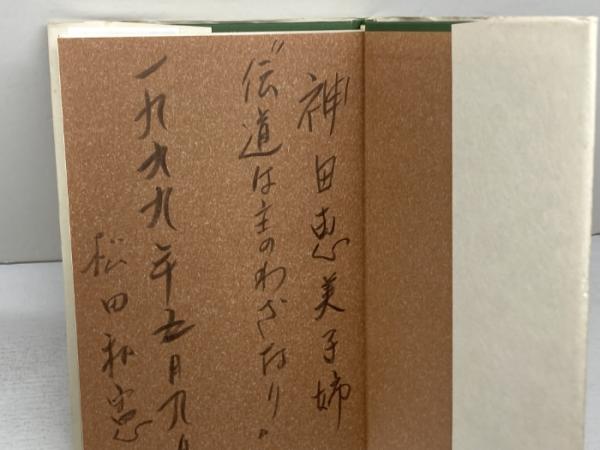 神田恵美子姉
“伝道は主のわざなり。
一九九九年七月九日
松田和憲